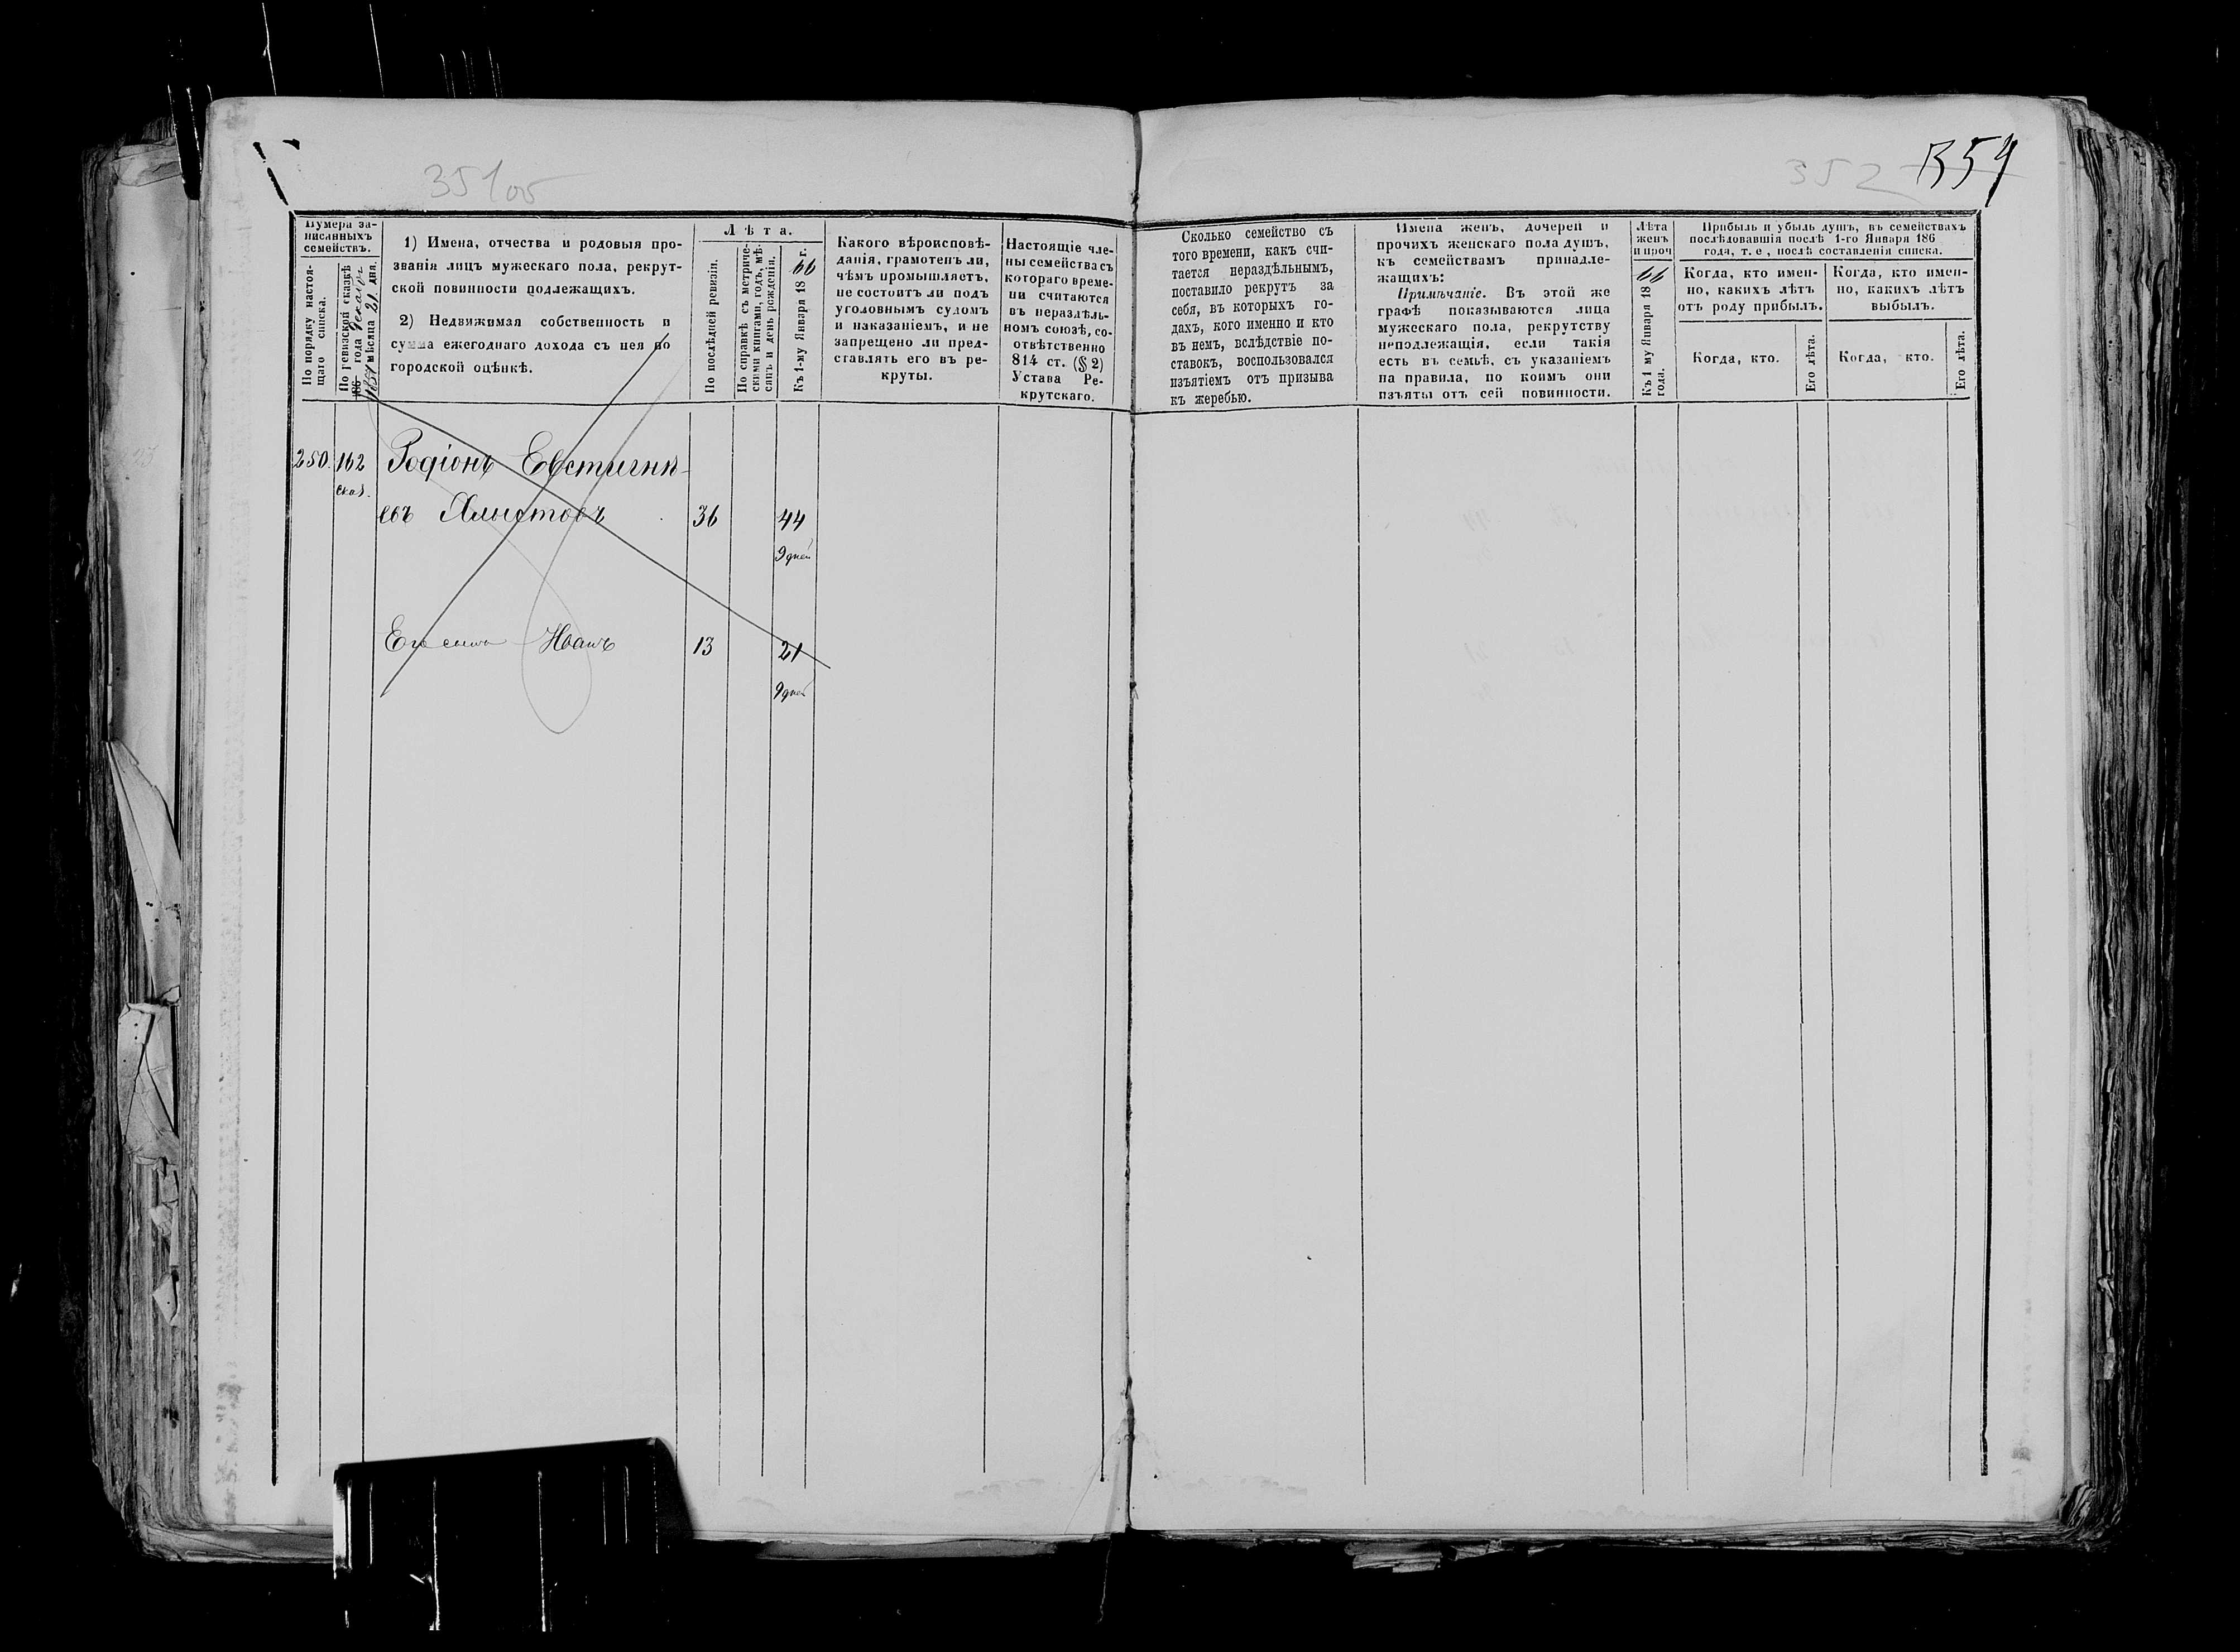 351 об
352
354
Нумера за-
писанныхъ
семействъ.
По порядку настоя-
щаго списка.
По ревизской сказкѣ
186 года Декабря
мѣсяца 21 дня.
1) Имена, отчества и родовыя про-
званія лицъ мужескаго пола, рекрут-
ской повинности подлежащихъ.
2) Недвижимая собственность и
сумма ежегоднаго дохода съ нея по
городской оцѣнкѣ.
Лѣта.
По послѣдней ревизіи.
По справкѣ съ метриче-
скими книгами, годъ, мѣ-
сяцъ и день рожденія.
Къ 1-му Января 1866 г.
Какого вѣроисповѣ-
данія, грамотенъ ли,
чѣмъ промышляетъ,
не состоитъ ли подъ
уголовнымъ судомъ
и наказаніемъ, и не
запрещено ли пред-
ставлять его въ ре-
круты.
Настоящіе чле-
ны семейства съ
котораго време-
ни считаются
въ нераздѣль-
номъ союзѣ, со-
отвѣтственно
814 ст. (§ 2)
Устава Ре-
крутскаго.
Сколько семейство съ
того времени, какъ счи-
тается нераздѣльнымъ,
поставило рекрутъ за
себя, въ которыхъ го-
дахъ, кого именно и кто
въ немъ, вслѣдствіе по-
ставокъ, воспользовался
изъятіемъ отъ призыва
къ жеребью.
Имена женъ, дочерей и
прочихъ женскаго пола душъ,
къ семействамъ принадле-
жащихъ:
Примѣчаніе. Въ этой же
графѣ показываются лица
мужескаго пола, рекрутству
неподлежащія, если такія
есть въ семьѣ, съ указаніемъ
на правила, по коимъ они
изъяты отъ сей повинности.
Лѣта
женъ
и проч
Къ 1 му Января 1866
года.
Прибыль и убыль душъ, въ семействахъ
послѣдовавшія послѣ 1-го Января 186
года, т. е, послѣ составленія списка.
Когда, кто имен-
но, какихъ лѣтъ
отъ роду прибылъ.
Когда, кто имен-
но, какихъ лѣтъ
выбылъ.
Когда, кто.
Его лѣта.
Когда, кто.
Его лѣта.
250. 162 Родіонъ Евстигнѣ-
сказ.
евъ 36 44
9 дней
Его сынъ Иванъ 13 21
9 дней